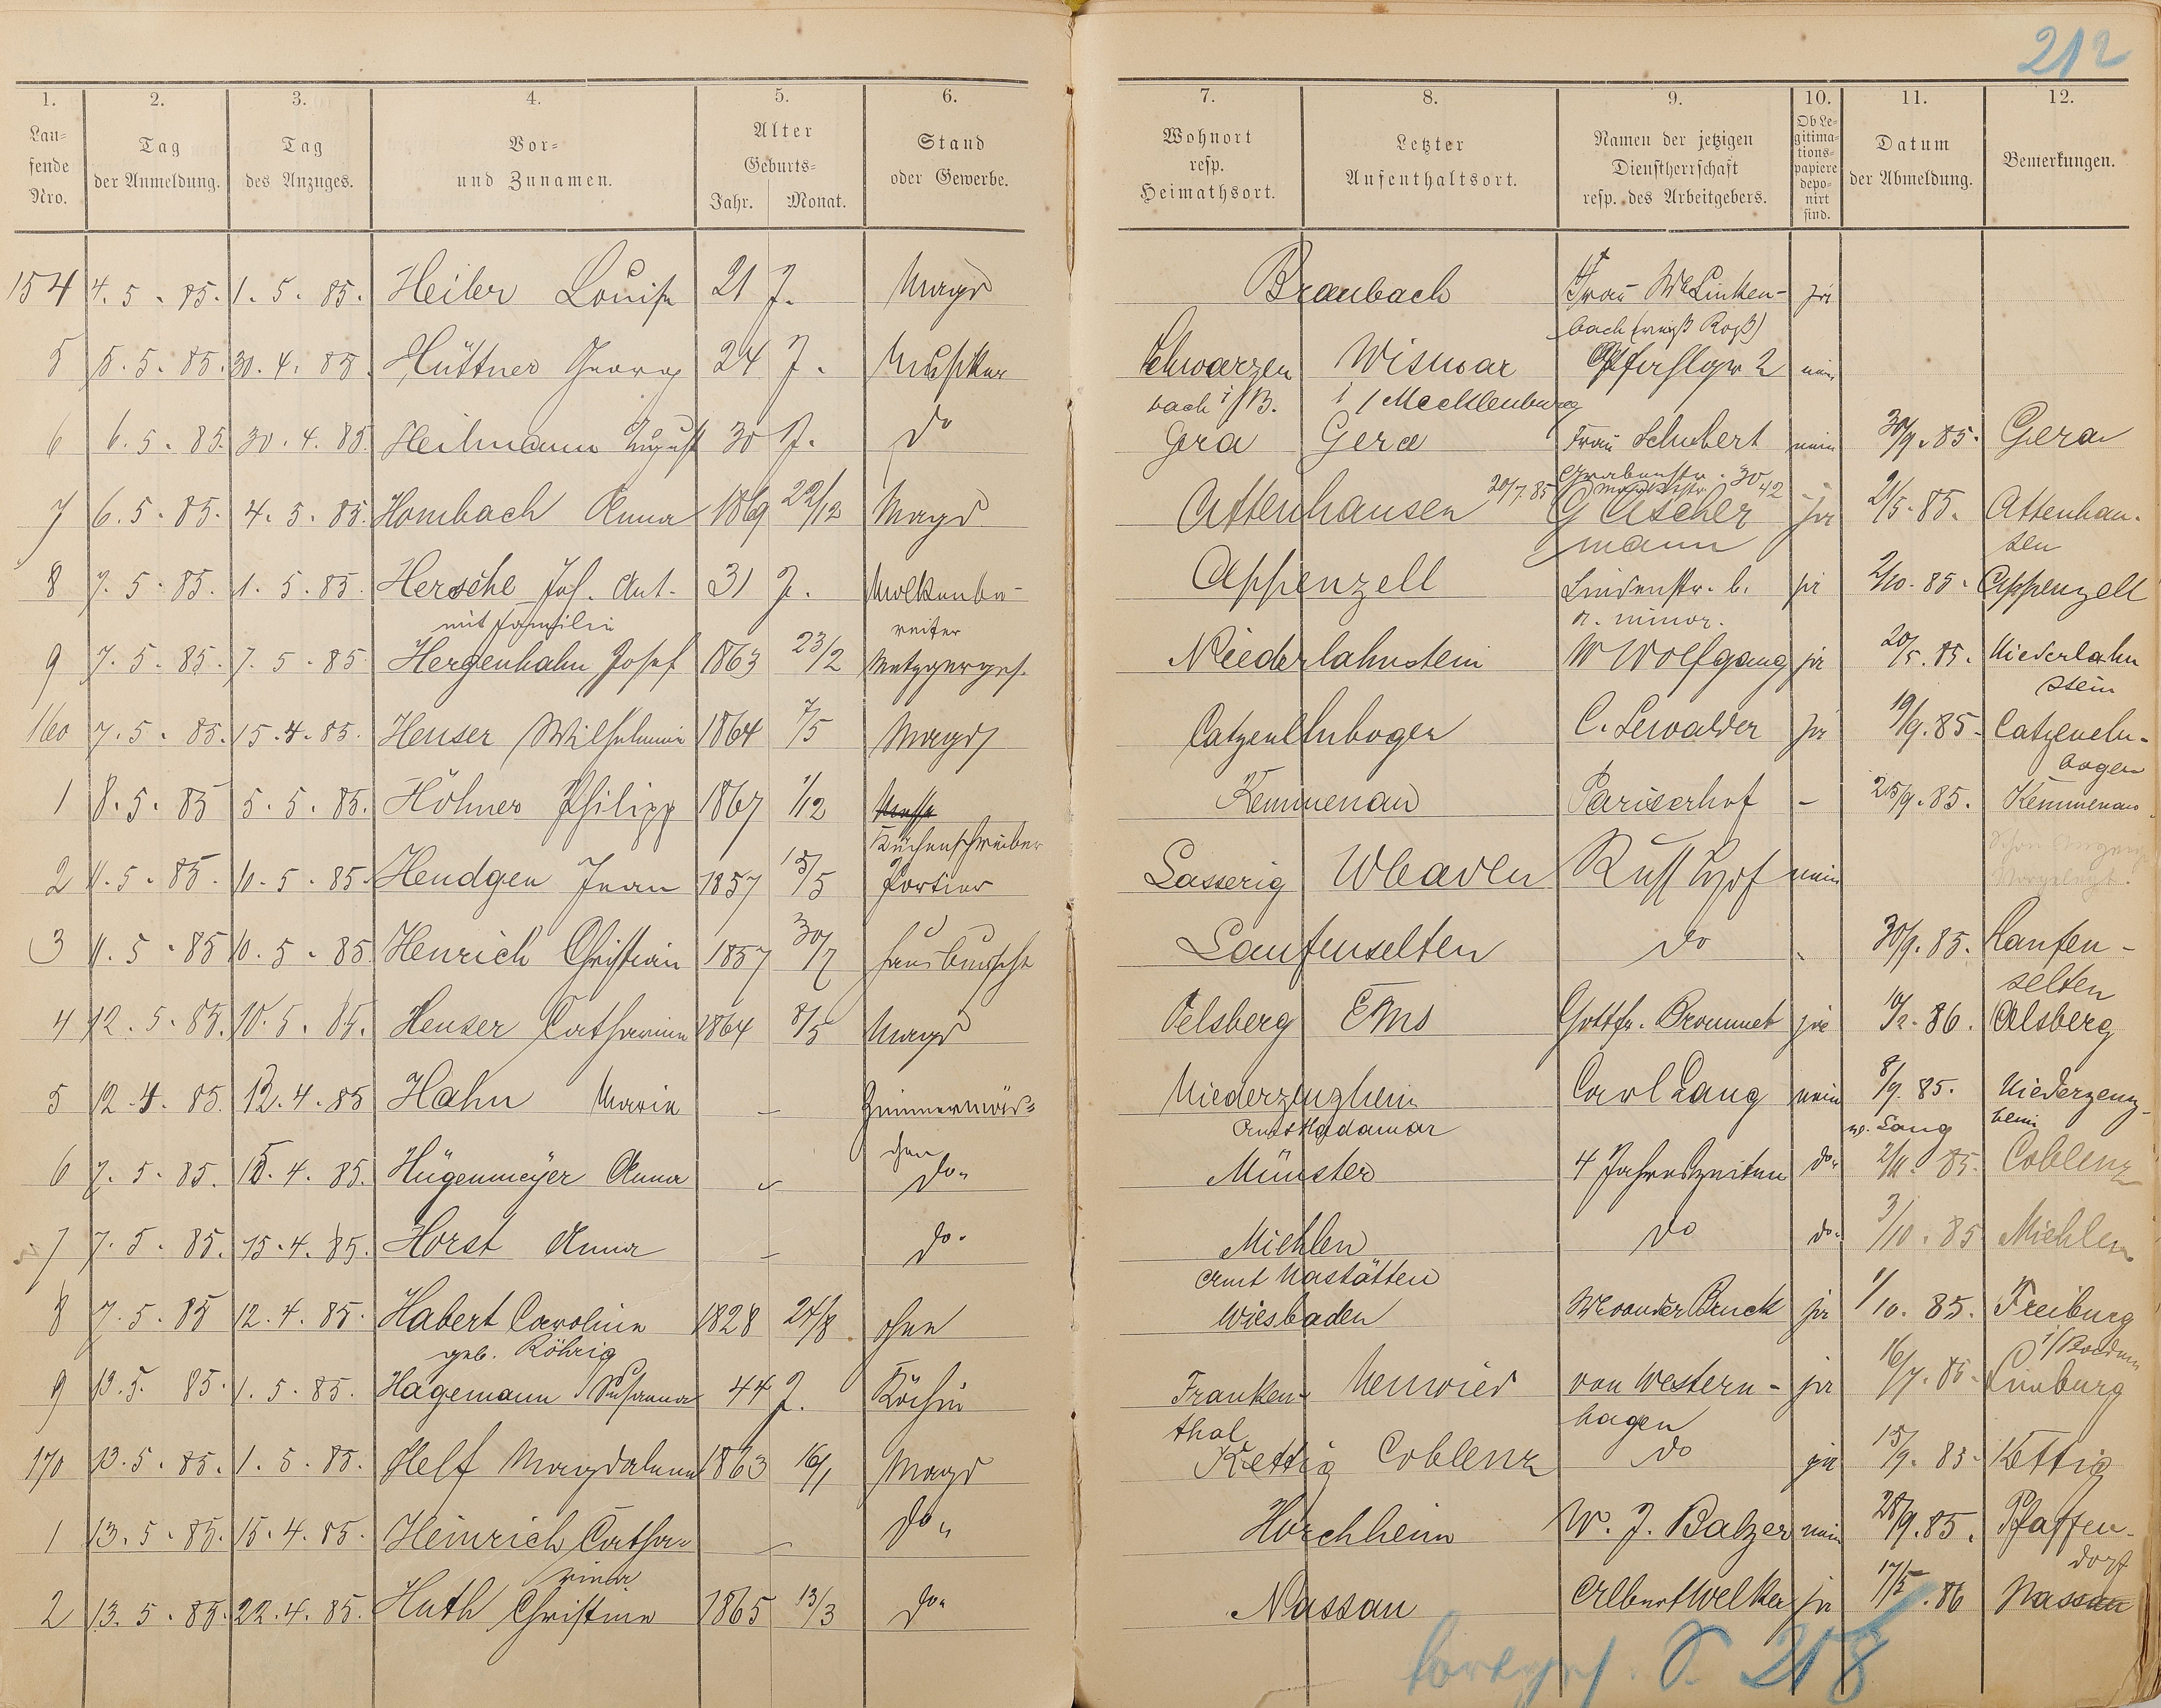 212
1. 2. 3. 4. 5. 6. 7. 8. 9. 10. 11. 12.
Lau-
fende
Nro.
Tag
der Anmeldung.
Tag
des Anzuges.
Vor-
und Zunamen.
Alter
Geburts-
Jahr. Monat.
Stand
oder Gewerbe.
Wohnort
resp.
Heimathsort.
Letzter
Aufenthaltsort.
Namen der jetzigen
Dienstherrschaft
resp. des Arbeitgebers.
Ob Le-
gitima-
tions-
papiere
depo-
nirt
sind.
Datum
der Abmeldung.
Bemerkungen.
154 4. 5. 85. 1. 5. 85. Heiler Louise 21 J. Magd Braubach Frau We Linken- ja
bach (weiß Roß)
5 5. 5. 85. 30. 4. 85. Hüttner Georg 24 J. Musiker Schwarzen Wismar 2 nein
bach i/B. i/Mecklenburg
6 6. 5. 85. 30. 4. 85. Heilmann August 30 J. do Gera Gera Frau Schubert nein 30/9. 85. Gera
Grabenstr. 30
7 6. 5. 85. 4. 5. 85. Hombach Anna 1869 22/12 Magd Attenhausen 20/7. 85 G Ascher ja 21/5. 85. Attenhau-
mann sen
8 7. 5. 85. 1. 5. 85. Hersche Jos. Ant. 31 J. Molkenbe- Appenzell Lindenstr. b. ja 2/10. 85. Appenzell
mit Familie reiter
9 7. 5. 85. 7. 5. 85. Hergenhahn Josef 1863 23/2 Metzgerges. Niederlahnstein W Wolfgang ja 20/5. 85. Niederlahn
stein
160 7. 5. 85. 15. 4. 85. Heuser Wilhelmine 1864 7/5 Magd Catzenellnbogen C. Lewalder ja 19/9. 85. Catzeneln-
bogen
1 8. 5. 85 5. 5. 85. Höhner Philipp 1867 1/12 Kemmenau Pariserhof - 25/9. 85. Kemmenau
Küchenschreiber
2 11. 5. 85. 10. 5. 85. Hendgen Jean 1857 15/5 Portier Lasserig Russ Hof nein
3 11. 5. 85 10. 5. 85 Henrich Christian 1857 30/7 Hausbursche Laufenselten do 30/9. 85. Laufen-
selten
4 12. 5. 85. 10. 5. 85. Heuser Catharine 1864 8/5 Magd Oelsberg Ems Gottfr. Brommet ja 10/2. 86. Oelsberg
5 12. 4. 85. 12. 4. 85 Hahn Maria - Zimmermäd- Niederzeuzheim Carl Lang nein 8/9. 85. Niederzeuz-
chen Amt Hadamar w. Lang heim
6 7. 5. 85. 15. 4. 85. Hügenmeyer Anna - do. Münster 4 Jahreszeiten do. 2/11. 85. Coblenz
7 7. 5. 85. 15. 4. 85. Horst Anna - do. Miehlen do do. 3/10. 85 Miehlen
Amt Nastätten
8 7. 5. 85 12. 4. 85. Habert Caroline 1828 24/8 ohne Wiesbaden We von der Bruck ja 1/10. 85. Freiburg
geb. Röhrig i/Baden
9 13. 5. 85. 1. 5. 85. Hagemann Susanna 44 J. Köchin Franken- Neuwied von Western- ja 16/7. 85. Limburg
thal hagen
170 13. 5. 85. 1. 5. 85. Helf Magdalena 1863 16/1 Magd Kettig Coblenz do ja 15/9. 85. Kettig
1 13. 5. 85. 15. 4. 85. Heinrich Catha- - do. Horchheim W. J. Balzer nein 28/9. 85. Pfaffen-
rina dorf
2 13. 5. 85. 22. 4. 85. Huth Christine 1865 13/3 do. Nassau Albert Welker ja 17/5. 86 Nassau
fortges. S. 218